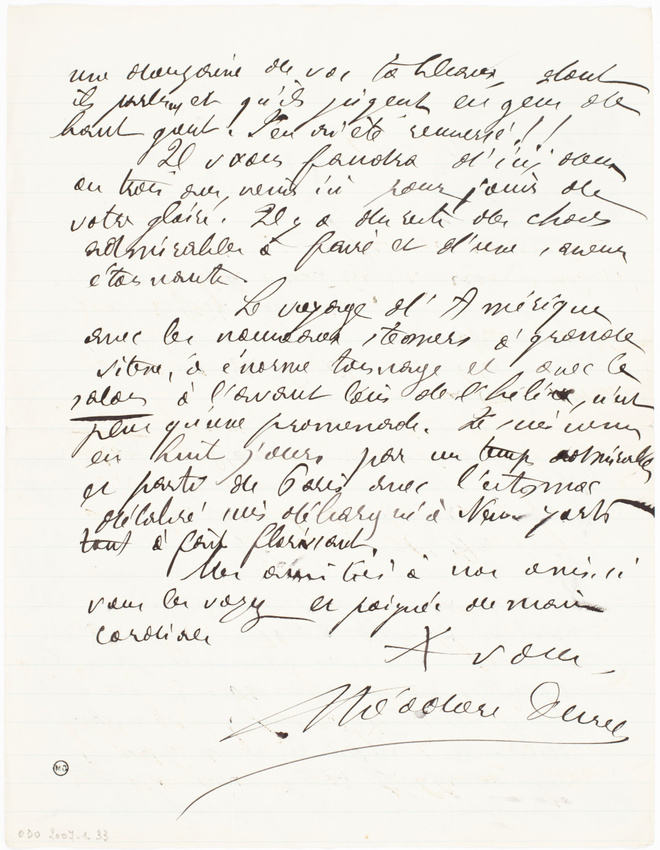 une douzaine de vos tableaux, dont
ils parlent et qu'ils jugent en gens de
haut gout! J'en ai été renversé!!
Il vous faudra d'ici deux
ou trois ans, venir ici pour jouir de
votre gloire. Il y a du reste des choses
admirables à faire et d'une saveur
étonnante.
Le voyage d'Amérique
avec les nouveaux stemers à grande
vitesse, à énorme tonnage et avec le
salon à l'avant loin de l'hélice, n'est
plus qu'une promenade. Je suis venu
en huit jours par un temps admirable
et parti de Paris avec l'estomac
délabré suis débarqué à New york
tout à fait florissant.
Mes amitiés à nos amis si
vous les voyez et poignée de main
cordiale
A vous
Théodore Duret
MO
ODO 2007.1.33